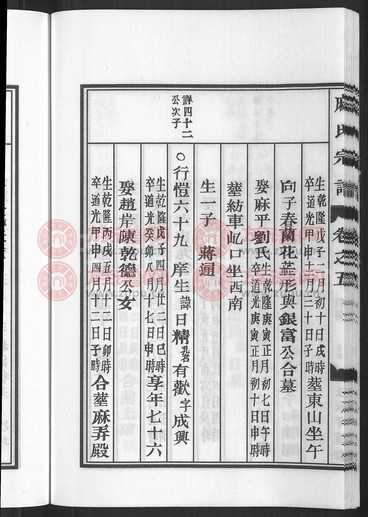 生乾隆戊子二月初十日戌時
卒道光甲申三月三十日子時
葬東山坐午
向子春蘭花蓋形與銀富公合墓
娶麻平劉氏
生乾隆庚寅正月初七日午時
卒道光庚寅正月初十日申時
葬紡車屼口坐西南
生一子 蔣通
詳四十二
公次子
○行愷六十九 庠生諱日精
有歡字成興
生乾隆戊子四月廿二日巳時
卒道光癸卯八月十七日申時
享年七十六
娶趙岸陳乾德公女
生乾隆丙戌五月十二日卯時
卒道光甲申四月十二日子時
合葬麻弄殿